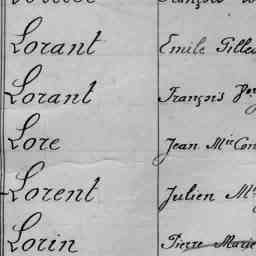 Lorant Emile Gilles
Lorant François
Lore Jean Mie
Lorent Julien
Lorin Pierre Marie